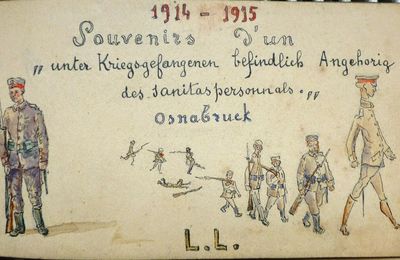 1914 - 1915
Souvenirs D'un
„ unter Kriegsgefangenen befindlich Angehorig
des sanitaspersonnals. „
Osnabruck
L.L.